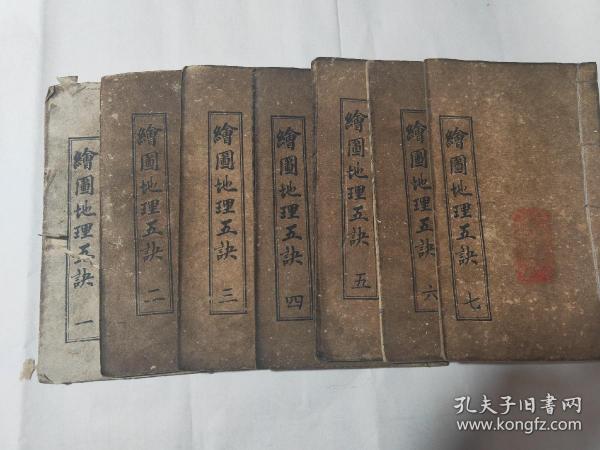 繪圖地理五訣 一
繪圖地理五訣 二
繪圖地理五訣 三
繪圖地理五訣 四
繪圖地理五訣 五
繪圖地理五訣 六
繪圖地理五訣 七
孔夫子旧书网
www.kongfz.com